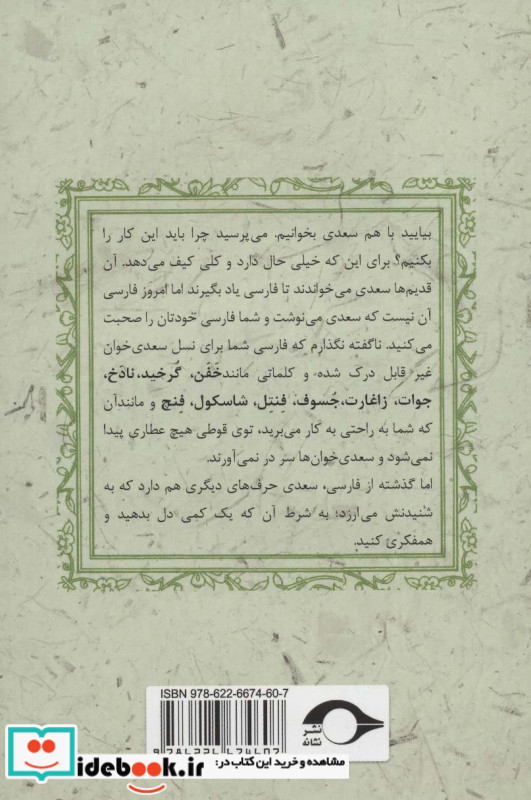 بیایید با هم سعدی بخوانیم. می‌پرسید چرا باید این کار را
بکنیم؟ برای این که خیلی حال دارد و کلی کیف می‌دهد. آن
قدیم‌ها سعدی می‌خواندند تا فارسی یاد بگیرند اما امروز فارسی
آن نیست که سعدی می‌نوشت و شما فارسی خودتان را صحبت
می‌کنید. ناگفته نگذارم که فارسی شما برای نسل سعدی‌خوان
غیر قابل درک شده و کلماتی مانند خَفَن، گُرخید، نادَخ،
جوات، زاغارت، جُسوف، فِنتِل، شاسکول، فِنچ و مانندآن
که شما به راحتی به کار می‌برید، توی قوطی هیچ عطاری پیدا
نمی‌شود و سعدی‌خوان‌ها سر در نمی‌آورند.
اما گذشته از فارسی، سعدی حرف‌های دیگری هم دارد که به
شنیدنش می‌ارزد؛ به شرط آن که یک کمی دل بدهید و
همفکری کنید.
ISBN 978-622-6674-60-7
نشر
نشانه
مشاهده و خرید این کتاب در:
idebook.ir